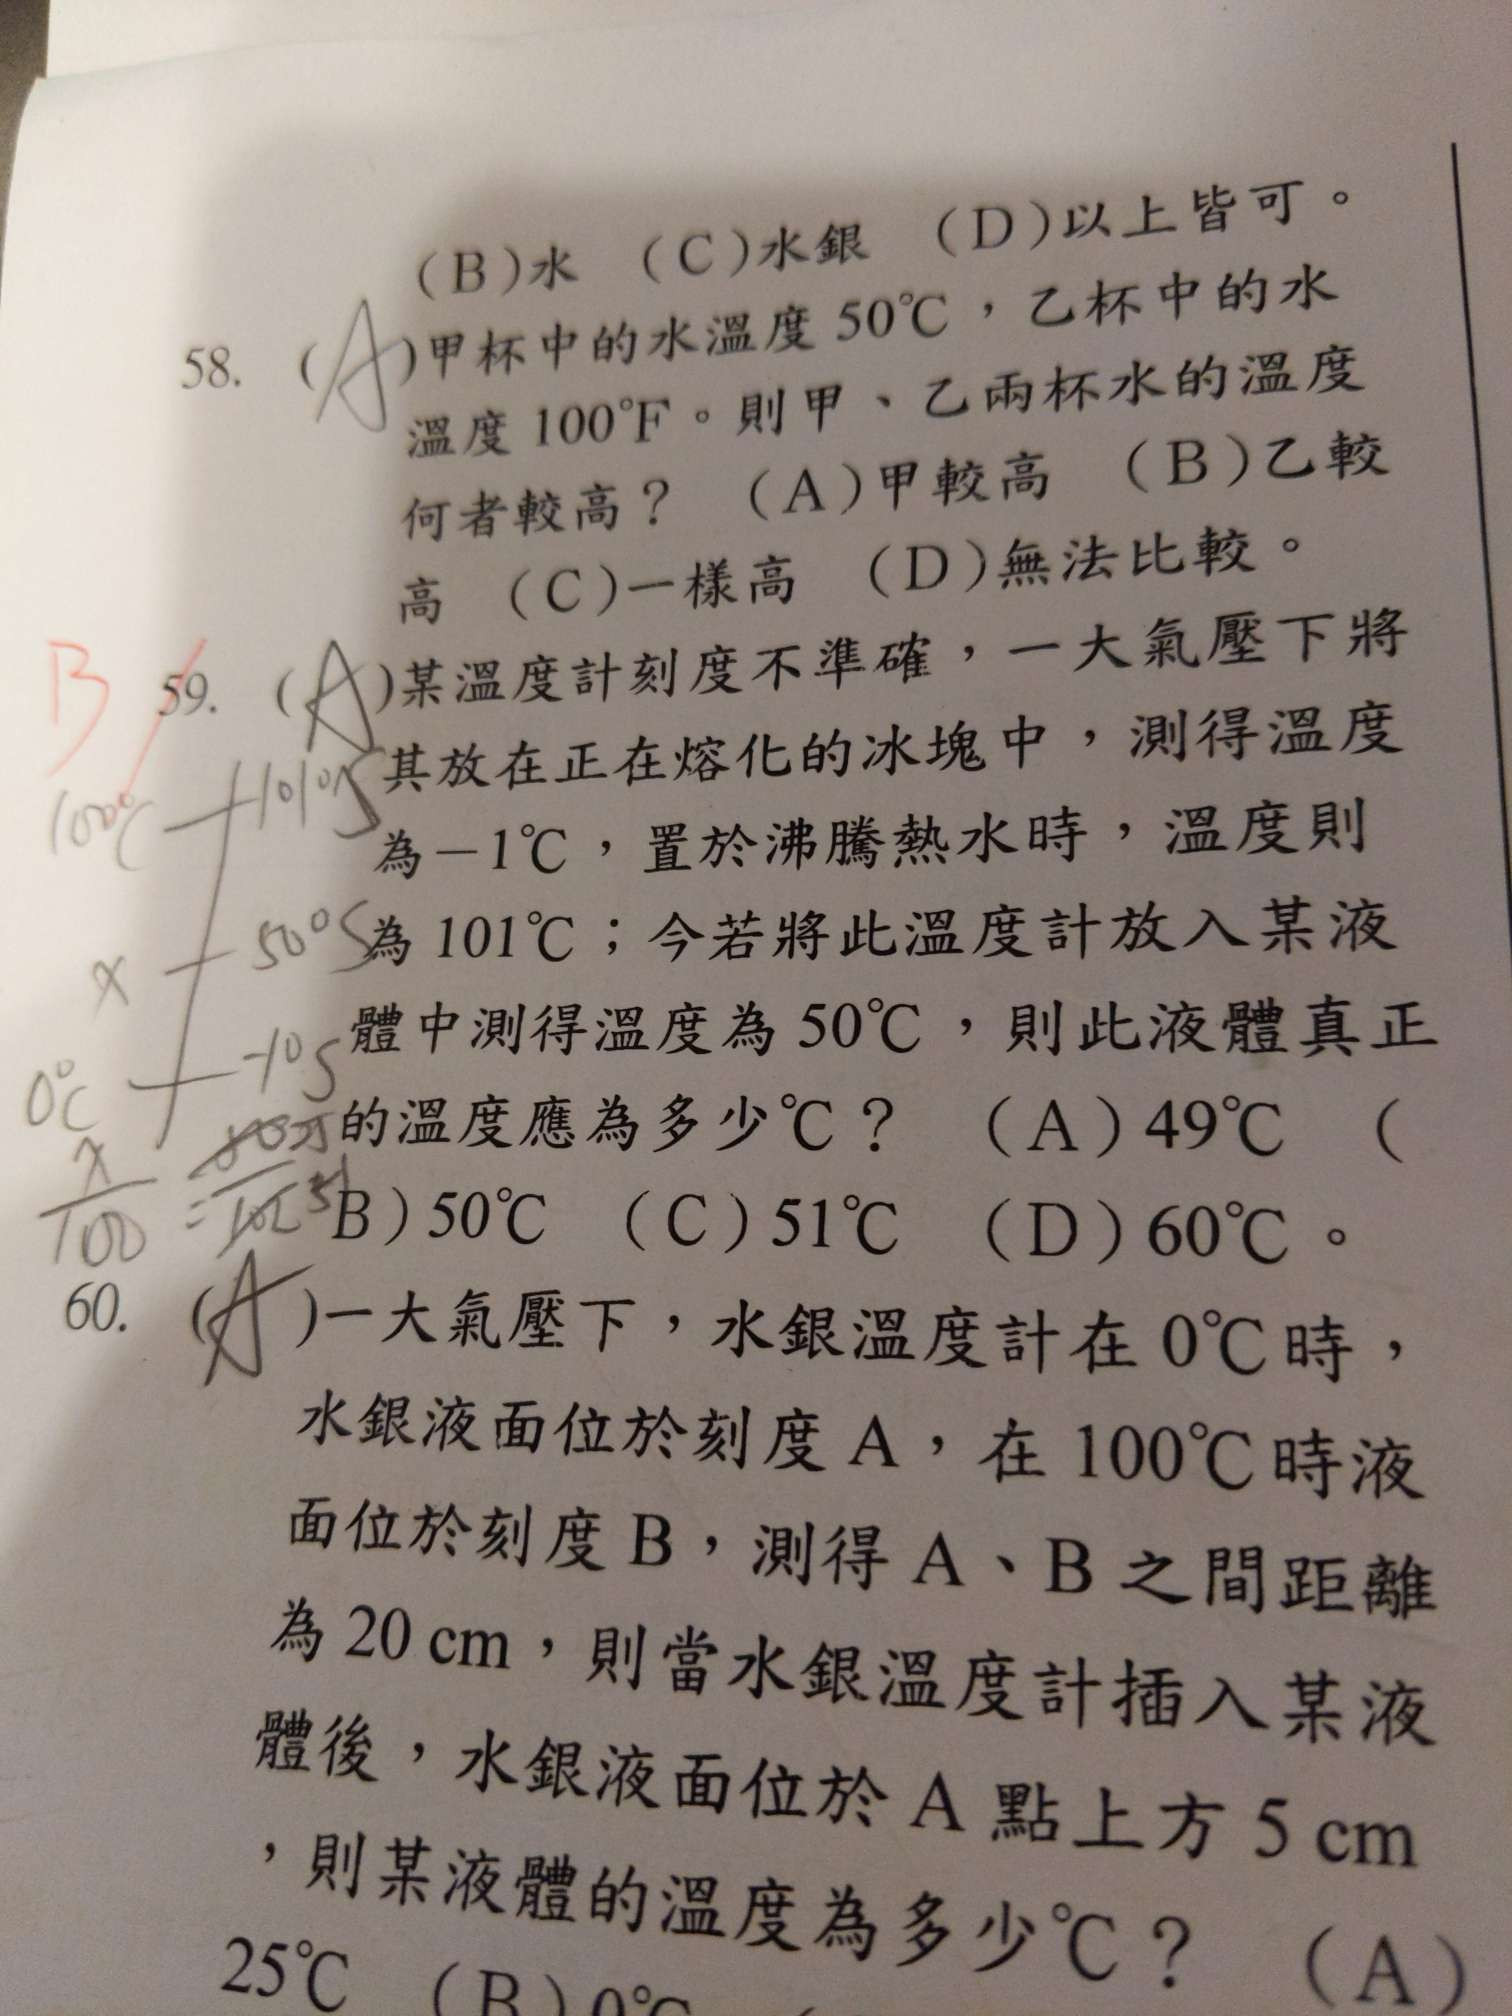 (B)水 (C)水銀 (D)以上皆可。
58. (A)甲杯中的水溫度50℃，乙杯中的水
溫度100℉。則甲、乙兩杯水的溫度
何者較高？ (A)甲較高 (B)乙較
高 (C)一樣高 (D)無法比較。
B
59. (A)某溫度計刻度不準確，一大氣壓下將
其放在正在熔化的冰塊中，測得溫度
100℃ 101°S
為－1℃，置於沸騰熱水時，溫度則
為101℃；今若將此溫度計放入某液
x 50°S
體中測得溫度為50℃，則此液體真正
0℃ -1°S
的溫度應為多少℃？ (A)49℃ (
x/100 =
B)50℃ (C)51℃ (D)60℃。
60. (A)一大氣壓下，水銀溫度計在0℃時，
水銀液面位於刻度A，在100℃時液
面位於刻度B，測得A、B之間距離
為20 cm，則當水銀溫度計插入某液
體後，水銀液面位於A點上方5 cm
，則某液體的溫度為多少℃？ (A)
25℃ (B)0℃